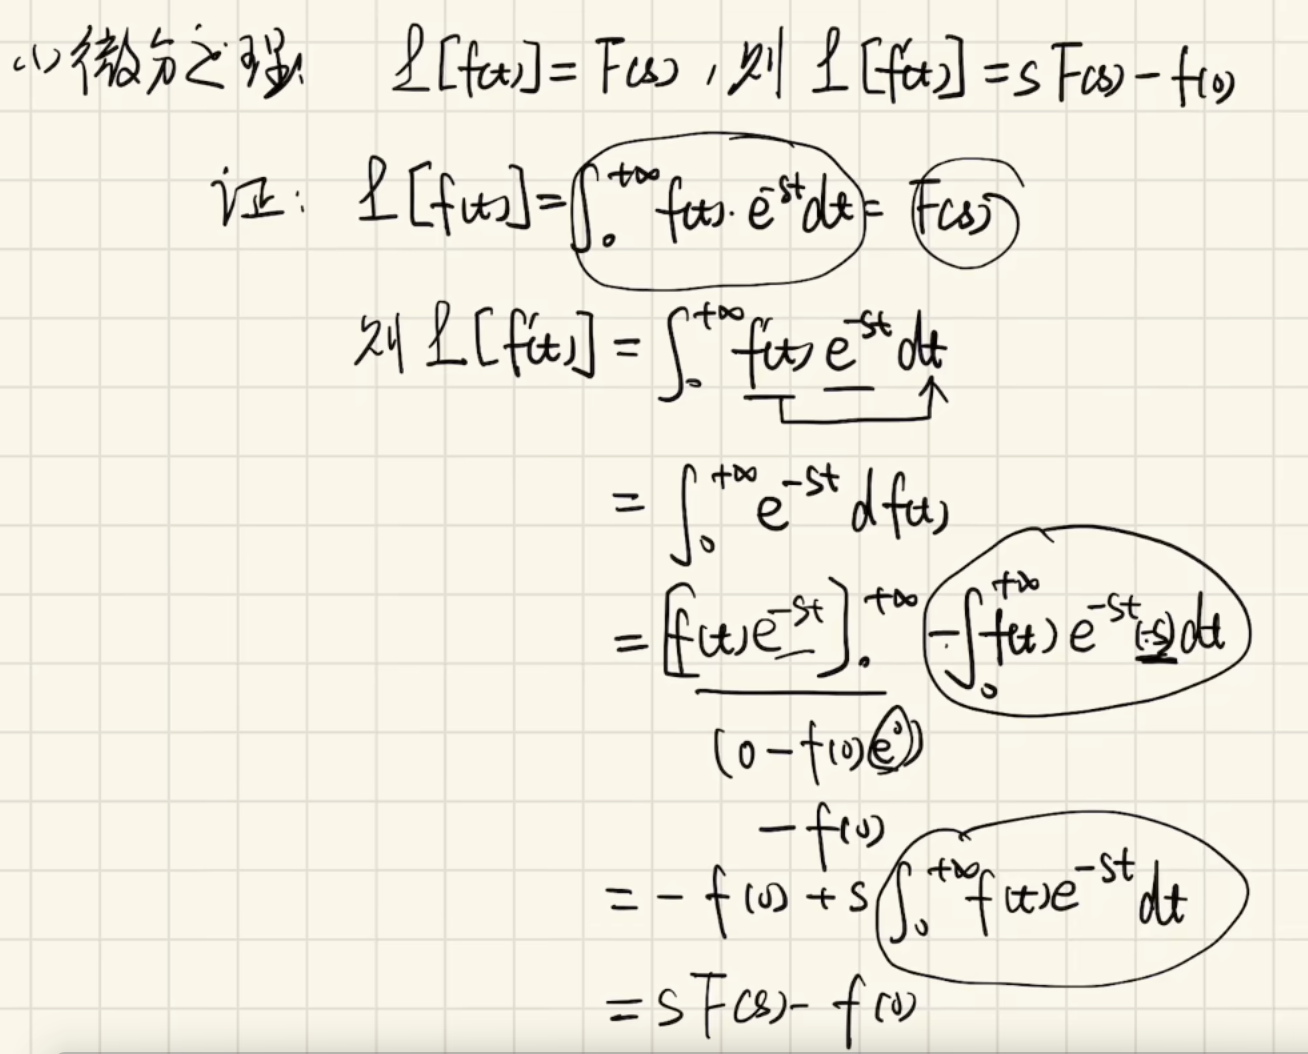 (1) 微分定理: ℒ[f(t)] = F(s), 则 ℒ[f'(t)] = sF(s) - f(0)
证: ℒ[f(t)] = ∫₀^{+∞} f(t)·e^{-st}dt = F(s)
则 ℒ[f'(t)] = ∫₀^{+∞} f'(t) e^{-st} dt
= ∫₀^{+∞} e^{-st} d f(t)
= [f(t)e^{-st}]₀^{+∞} - ∫₀^{+∞} f(t) e^{-st}(-s)dt
(0 - f(0)e⁰)
- f(0)
= - f(0) + s ∫₀^{+∞} f(t)e^{-st} dt
= sF(s) - f(0)